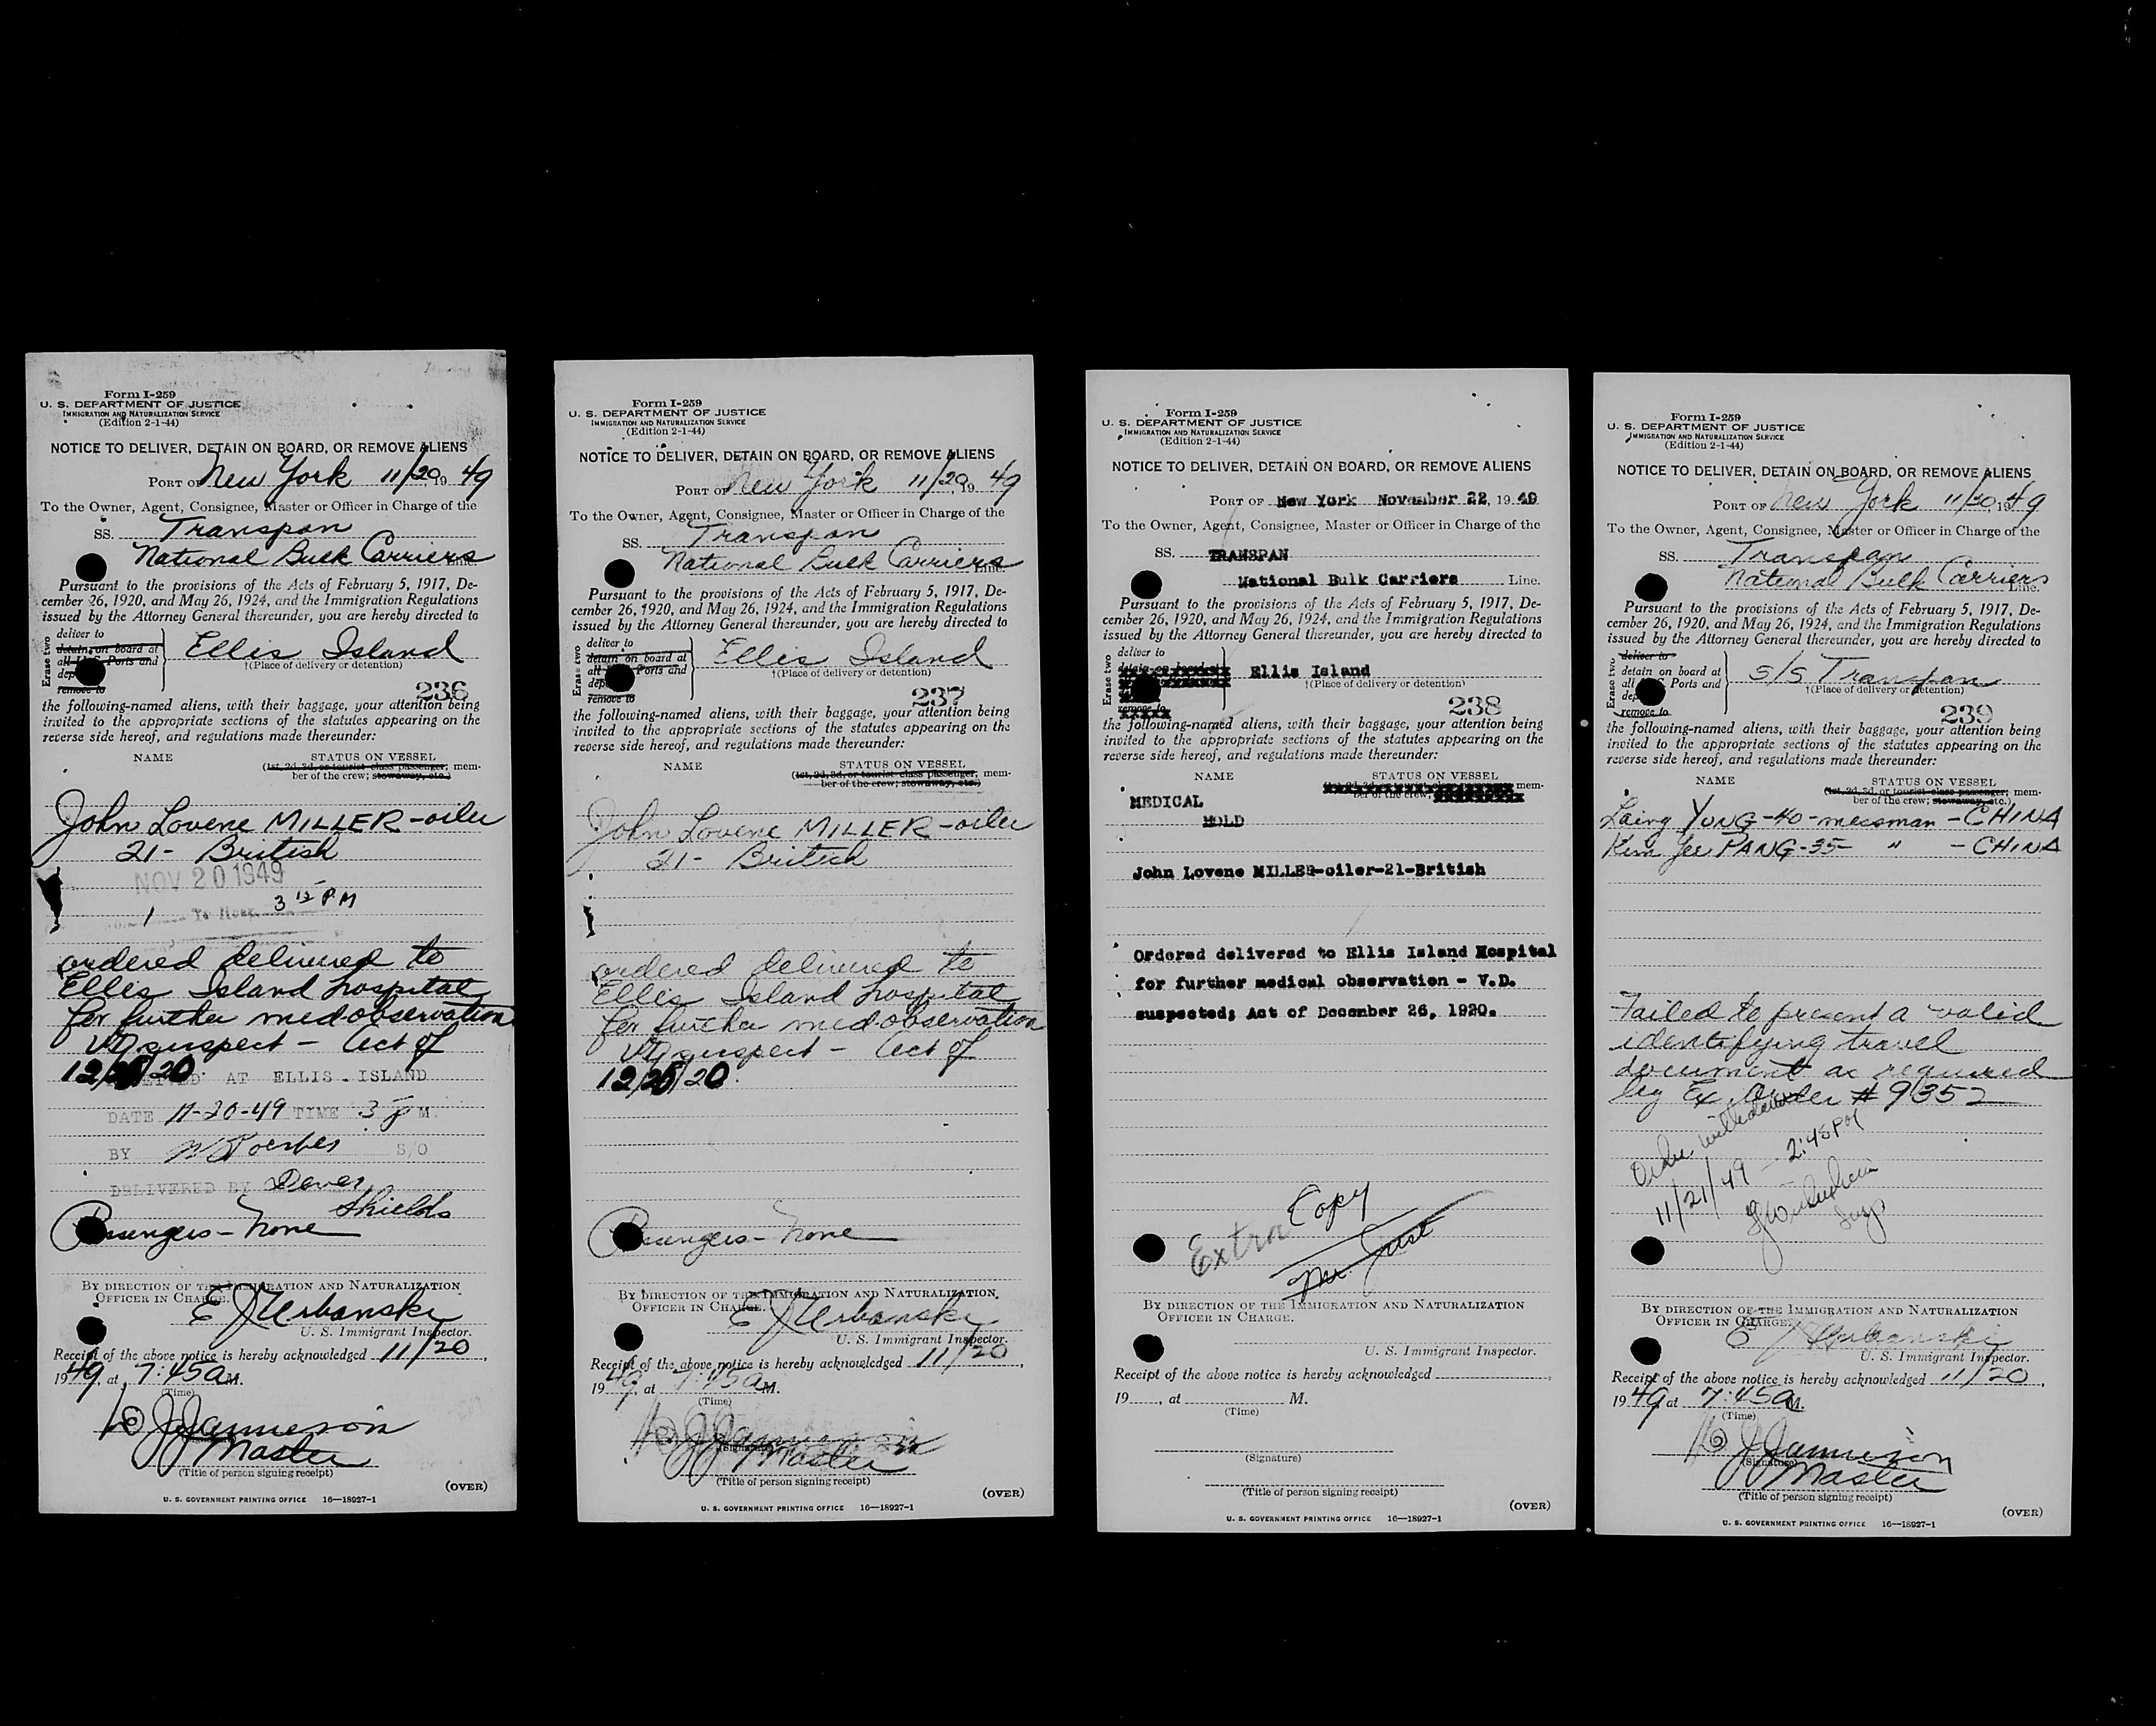 Form I-259
U. S. DEPARTMENT OF JUSTICE
IMMIGRATION AND NATURALIZATION SERVICE
(Edition 2-1-44)
NOTICE TO DELIVER, DETAIN ON BOARD, OR REMOVE ALIENS
PORT OF New York 11/20, 19 49
To the Owner, Agent, Consignee, Master or Officer in Charge of the
SS. Transpan
National Bulk Carriers Line.
Pursuant to the provisions of the Acts of February 5, 1917, De-
cember 26, 1920, and May 26, 1924, and the Immigration Regulations
issued by the Attorney General thereunder, you are hereby directed to
Erase two
deliver to
detain on board at
all U.S. Ports and
remove to
Ellis Island
†(Place of delivery or detention)
236
the following-named aliens, with their baggage, your attention being
invited to the appropriate sections of the statutes appearing on the
reverse side hereof, and regulations made thereunder:
NAME STATUS ON VESSEL
(1st, 2d, 3d, or tourist class passenger; mem-
ber of the crew; stowaway, etc.)
John Lovene MILLER - oiler
21 - British
NOV 20 1949
1 To Hosp. 3 15 PM
ordered delivered to
Ellis Island hospital
for further med observation
VD suspect - Act of
12/26/20
AT ELLIS ISLAND
DATE 11-20-49 TIME 3 P M.
BY S/O
DELIVERED BY
Shields
Passengers - None
BY DIRECTION OF THE IMMIGRATION AND NATURALIZATION
OFFICER IN CHARGE.
E J Urbanski
U. S. Immigrant Inspector.
Receipt of the above notice is hereby acknowledged 11/20,
1949, at 7:45 a M.
(Time)
J Jamieson
Master
(Title of person signing receipt)
(OVER)
U. S. GOVERNMENT PRINTING OFFICE 16—18927-1
Form I-259
U. S. DEPARTMENT OF JUSTICE
IMMIGRATION AND NATURALIZATION SERVICE
(Edition 2-1-44)
NOTICE TO DELIVER, DETAIN ON BOARD, OR REMOVE ALIENS
PORT OF New York 11/20, 19 49
To the Owner, Agent, Consignee, Master or Officer in Charge of the
SS. Transpan
National Bulk Carriers Line.
Pursuant to the provisions of the Acts of February 5, 1917, De-
cember 26, 1920, and May 26, 1924, and the Immigration Regulations
issued by the Attorney General thereunder, you are hereby directed to
Erase two
deliver to
detain on board at
all Ports and
remove to
Ellis Island
†(Place of delivery or detention)
237
the following-named aliens, with their baggage, your attention being
invited to the appropriate sections of the statutes appearing on the
reverse side hereof, and regulations made thereunder:
NAME STATUS ON VESSEL
(1st, 2d, 3d, or tourist class passenger; mem-
ber of the crew; stowaway, etc.)
John Lovene MILLER - oiler
21 - British
ordered delivered to
Ellis Island hospital
for further med observation
VD suspect - Act of
12/26/20.
Passengers - None
BY DIRECTION OF THE IMMIGRATION AND NATURALIZATION
OFFICER IN CHARGE.
E J Urbanski
U. S. Immigrant Inspector.
Receipt of the above notice is hereby acknowledged 11/20,
1949, at 7:45 a M.
(Time)
J Jamieson
(Signature)
Master
(Title of person signing receipt)
(OVER)
U. S. GOVERNMENT PRINTING OFFICE 16—18927-1
Form I-259
U. S. DEPARTMENT OF JUSTICE
IMMIGRATION AND NATURALIZATION SERVICE
(Edition 2-1-44)
NOTICE TO DELIVER, DETAIN ON BOARD, OR REMOVE ALIENS
PORT OF New York November 22, 19 49
To the Owner, Agent, Consignee, Master or Officer in Charge of the
SS. TRANSPAN
National Bulk Carriers Line.
Pursuant to the provisions of the Acts of February 5, 1917, De-
cember 26, 1920, and May 26, 1924, and the Immigration Regulations
issued by the Attorney General thereunder, you are hereby directed to
Erase two
deliver to
detain on board
remove to
Ellis Island
†(Place of delivery or detention)
238
the following-named aliens, with their baggage, your attention being
invited to the appropriate sections of the statutes appearing on the
reverse side hereof, and regulations made thereunder:
NAME STATUS ON VESSEL
mem-
ber of the crew;
MEDICAL
HOLD
John Lovene MILLER-oiler-21-British
Ordered delivered to Ellis Island Hospital
for further medical observation - V.D.
suspected; Act of December 26, 1920.
Extra Copy
BY DIRECTION OF THE IMMIGRATION AND NATURALIZATION
OFFICER IN CHARGE.
U. S. Immigrant Inspector.
Receipt of the above notice is hereby acknowledged
19....., at M.
(Time)
(Signature)
(Title of person signing receipt)
(OVER)
U. S. GOVERNMENT PRINTING OFFICE 16—18927-1
Form I-259
U. S. DEPARTMENT OF JUSTICE
IMMIGRATION AND NATURALIZATION SERVICE
(Edition 2-1-44)
NOTICE TO DELIVER, DETAIN ON BOARD, OR REMOVE ALIENS
PORT OF New York 11/20, 19 49
To the Owner, Agent, Consignee, Master or Officer in Charge of the
SS. Transpan
National Bulk Carriers Line.
Pursuant to the provisions of the Acts of February 5, 1917, De-
cember 26, 1920, and May 26, 1924, and the Immigration Regulations
issued by the Attorney General thereunder, you are hereby directed to
Erase two
deliver to
detain on board at
all Ports and
remove to
S/S Transpan
†(Place of delivery or detention)
239
the following-named aliens, with their baggage, your attention being
invited to the appropriate sections of the statutes appearing on the
reverse side hereof, and regulations made thereunder:
NAME STATUS ON VESSEL
(1st, 2d, 3d, or tourist class passenger; mem-
ber of the crew; stowaway, etc.)
Laing YUNG - 40 - messman - CHINA
Kim Yee PANG - 35 - " - CHINA
Failed to present a valid
identifying travel
document as required
by Ex. Order # 9352
Order withdrawn
11/21/49 - 2:45 PM
Insp
BY DIRECTION OF THE IMMIGRATION AND NATURALIZATION
OFFICER IN CHARGE.
E J Urbanski
U. S. Immigrant Inspector.
Receipt of the above notice is hereby acknowledged 11/20,
1949 at 7:45 a M.
(Time)
J Jamieson
(Signature)
Master
(Title of person signing receipt)
(OVER)
U. S. GOVERNMENT PRINTING OFFICE 16—18927-1